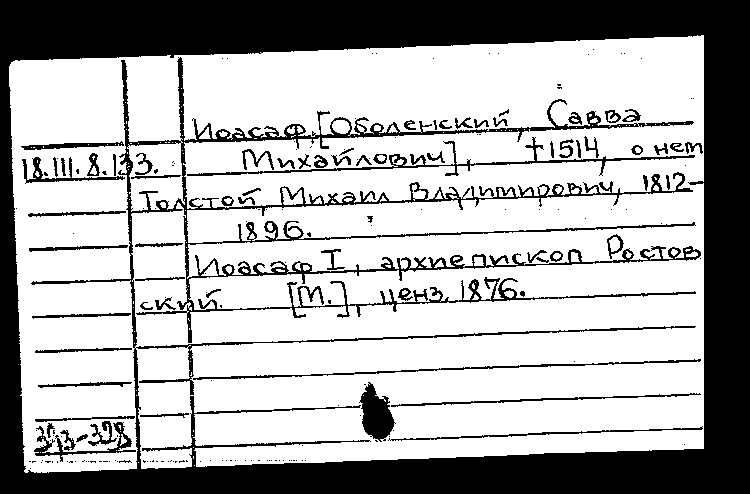 Иоасаф, [Оболенский, Савва
18.III.8.133. Михайлович], †1514, о нем
Толстой, Михаил Владимирович, 1812-
1896.
Иоасаф I, архиепископ Ростов
ский. [М.], ценз. 1876.
-328